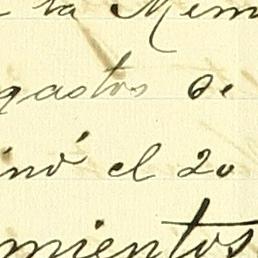 la Mem
gastos de
inó el 20
mientos